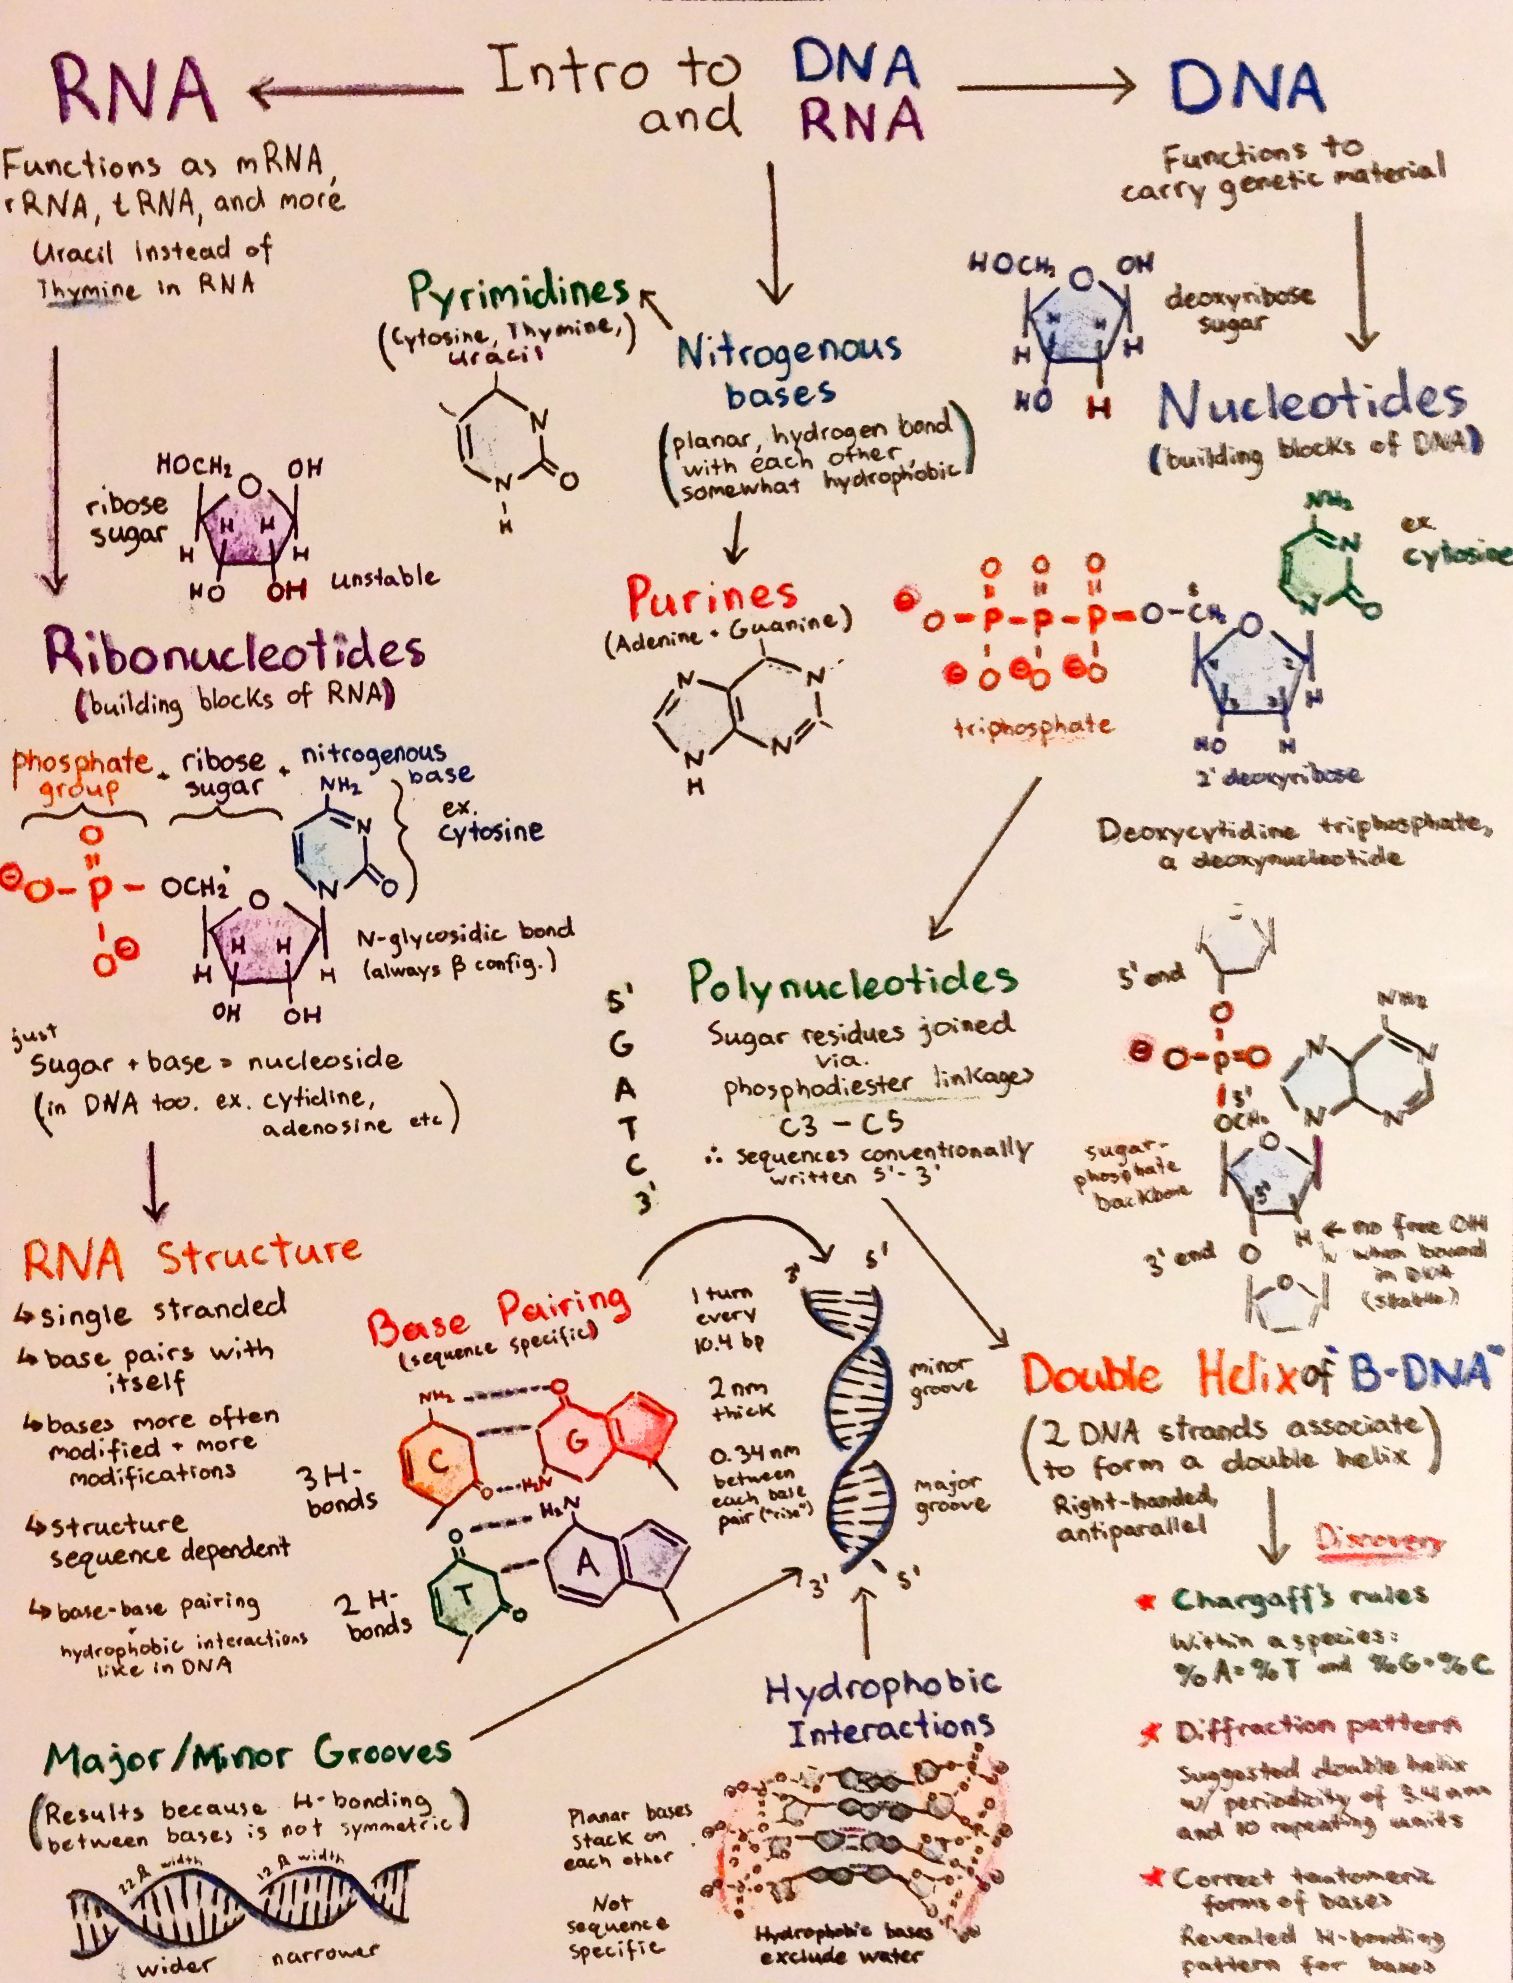 Intro to DNA
and RNA
RNA
Functions as mRNA,
rRNA, tRNA, and more
Uracil instead of
Thymine in RNA
HOCH₂ O OH
ribose
sugar
H H
H H
HO OH
unstable
Ribonucleotides
(building blocks of RNA)
phosphate + ribose + nitrogenous
group sugar base
NH₂
N
N
O
ex.
cytosine
O
⊖O-P-OCH₂
O⊖
O
H H
H H
OH OH
N-glycosidic bond
(always β config.)
just
Sugar + base = nucleoside
(in DNA too. ex. cytidine,
adenosine etc)
RNA Structure
↳ single stranded
↳ base pairs with
itself
↳ bases more often
modified + more
modifications
↳ structure
sequence dependent
↳ base-base pairing
+
hydrophobic interactions
like in DNA
Pyrimidines
(Cytosine, Thymine,)
uracil
N
N
O
H
Nitrogenous
bases
(planar, hydrogen bond
with each other,
somewhat hydrophobic)
Purines
(Adenine + Guanine)
N
N
N
N
H
DNA
Functions to
carry genetic material
HOCH₂ O OH
deoxyribose
sugar
H H
H H
HO H
Nucleotides
(building blocks of DNA)
NH₂
N
N
O
ex.
cytosine
O O O
⊖
O-P-P-P-O-CH₂
⊖O ⊖O ⊖O
triphosphate
O
H
HO H
2' deoxyribose
Deoxycytidine triphosphate,
a deoxynucleotide
Polynucleotides
Sugar residues joined
via
phosphodiester linkages
C3 - C5
∴ sequences conventionally
written 5'- 3'
5'
G
A
T
C
3'
5' end
O
⊖ O-P=O
5'
OCH₂
NH₂
N
N
N
N
O
sugar-
phosphate
backbone
3'
H ← no free OH
when bound
in DNA
(stable)
3' end O
O
Base Pairing
(sequence specific)
NH₂
O
C
G
O
H₂N
N
3 H-
bonds
O
H₂N
T
A
O
2 H-
bonds
3' 5'
1 turn
every
10.4 bp
2 nm
thick
0.34 nm
between
each base
pair ("rise")
minor
groove
major
groove
3' 5'
Double Helix of "B-DNA"
(2 DNA strands associate
to form a double helix)
Right-handed,
antiparallel
Discovery
★ Chargaff's rules
Within a species:
%A=%T and %G=%C
★ Diffraction pattern
Suggested double helix
w/ periodicity of 3.4 nm
and 10 repeating units
★ Correct tautomeric
forms of bases
Revealed H-bonding
pattern for bases
Major/Minor Grooves
(Results because H-bonding
between bases is not symmetric)
22 Å width
12 Å width
wider
narrower
Hydrophobic
Interactions
Planar bases
stack on
each other
Not
sequence
specific
Hydrophobic bases
exclude water